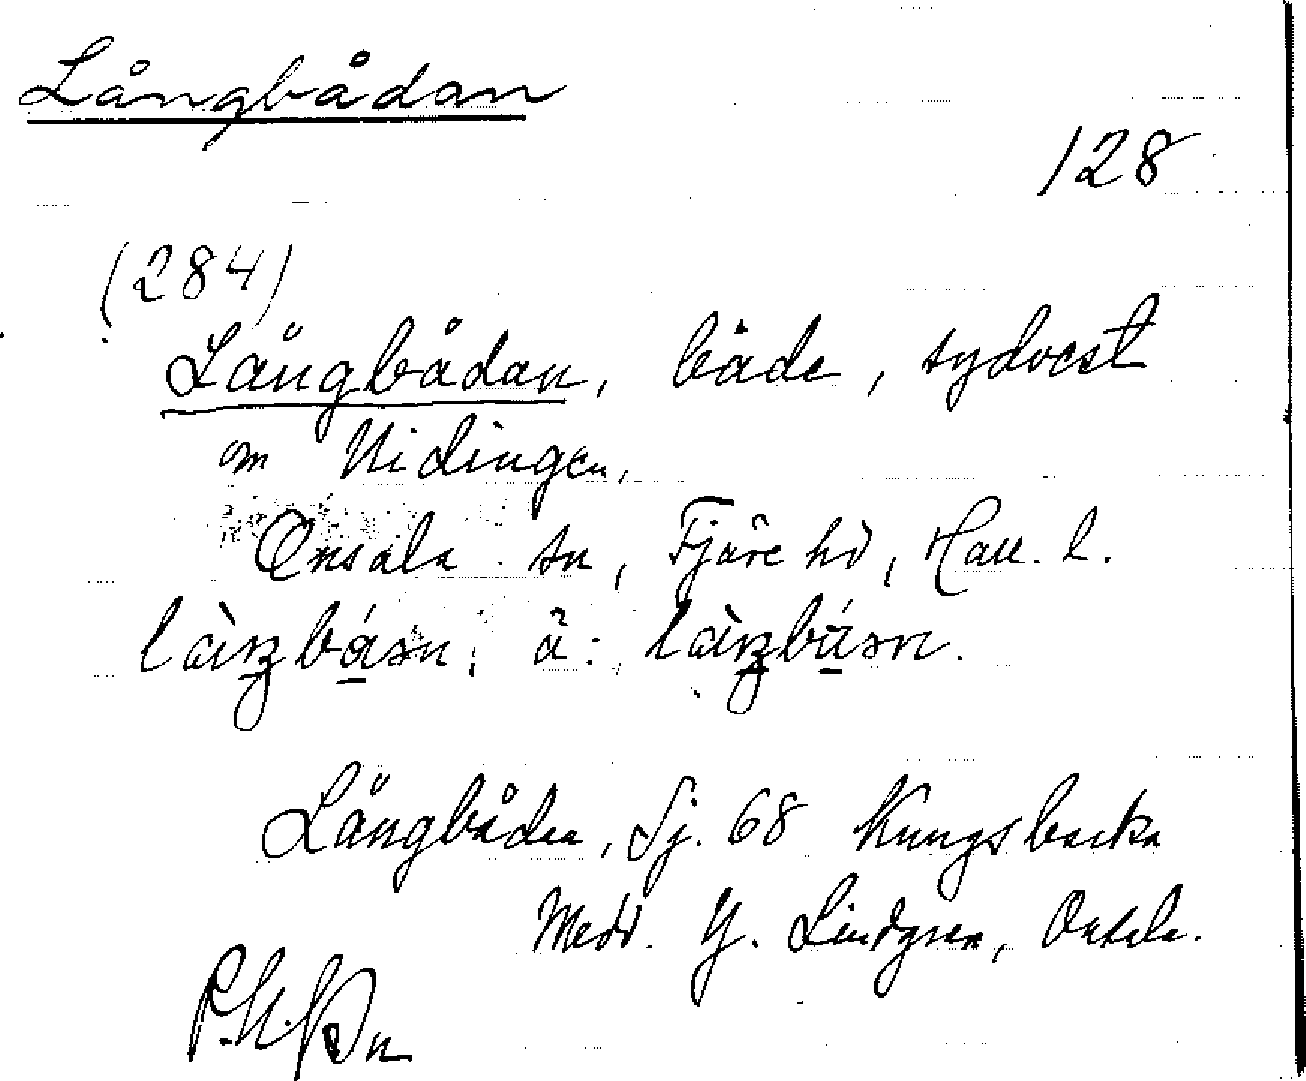 Långbådan
128
(284)
Långbådan, både, sydvest
om Nidingen,
Onsala sn, Fjäre hd, Hall. l.
Långbåden, Sj. 68 Kungsbacka
Medd. Y. Lindgren, Onsala.